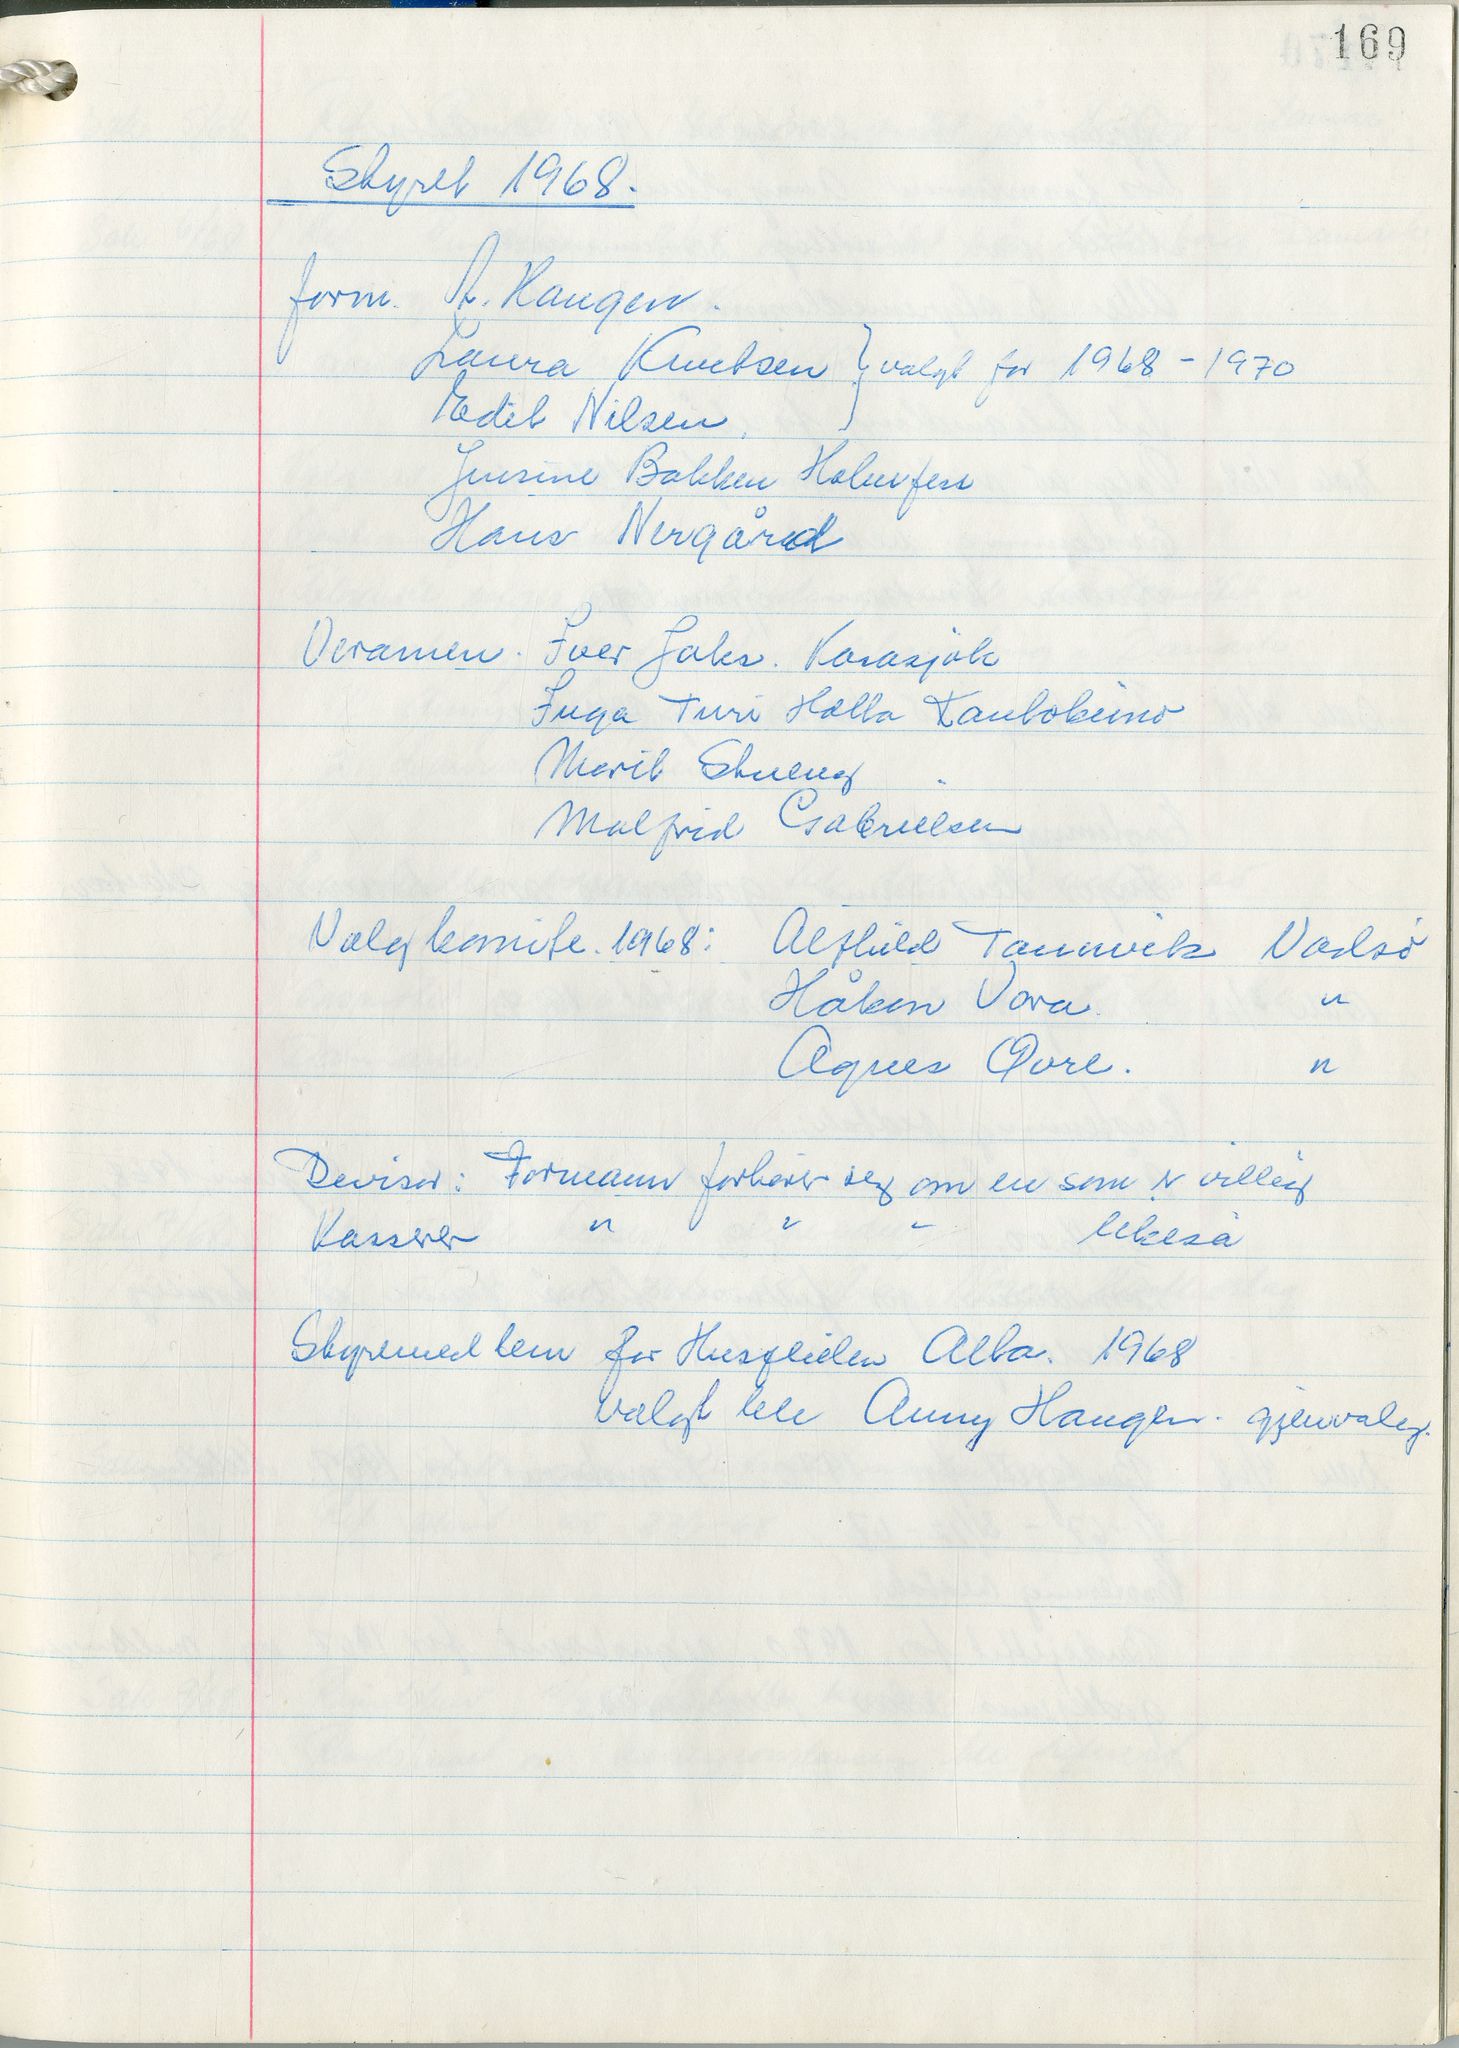 169
Styret 1968.
form. A. Haugen.
Laura Knutsen } valgt for 1968 - 1970
Edit Nilsen.
Jensine Bakken Holmfjell
Hans Nergård
Varamen. Iver Jaks. Karasjok
Inga Turi Hætta Kautokeino
Marit Stueng
Malfrid Gabrielsen
Valgkomite. 1968: Alfhild Tannvik Vadsö
Håkon Vora "
Agnes Øvre. "
Revisor: Formann forhører seg om en som er villig
Kasserer " " " likeså
Styremedlem for Husfliden Alta. 1968
valgt ble Anny Haugen. gjenvalg.